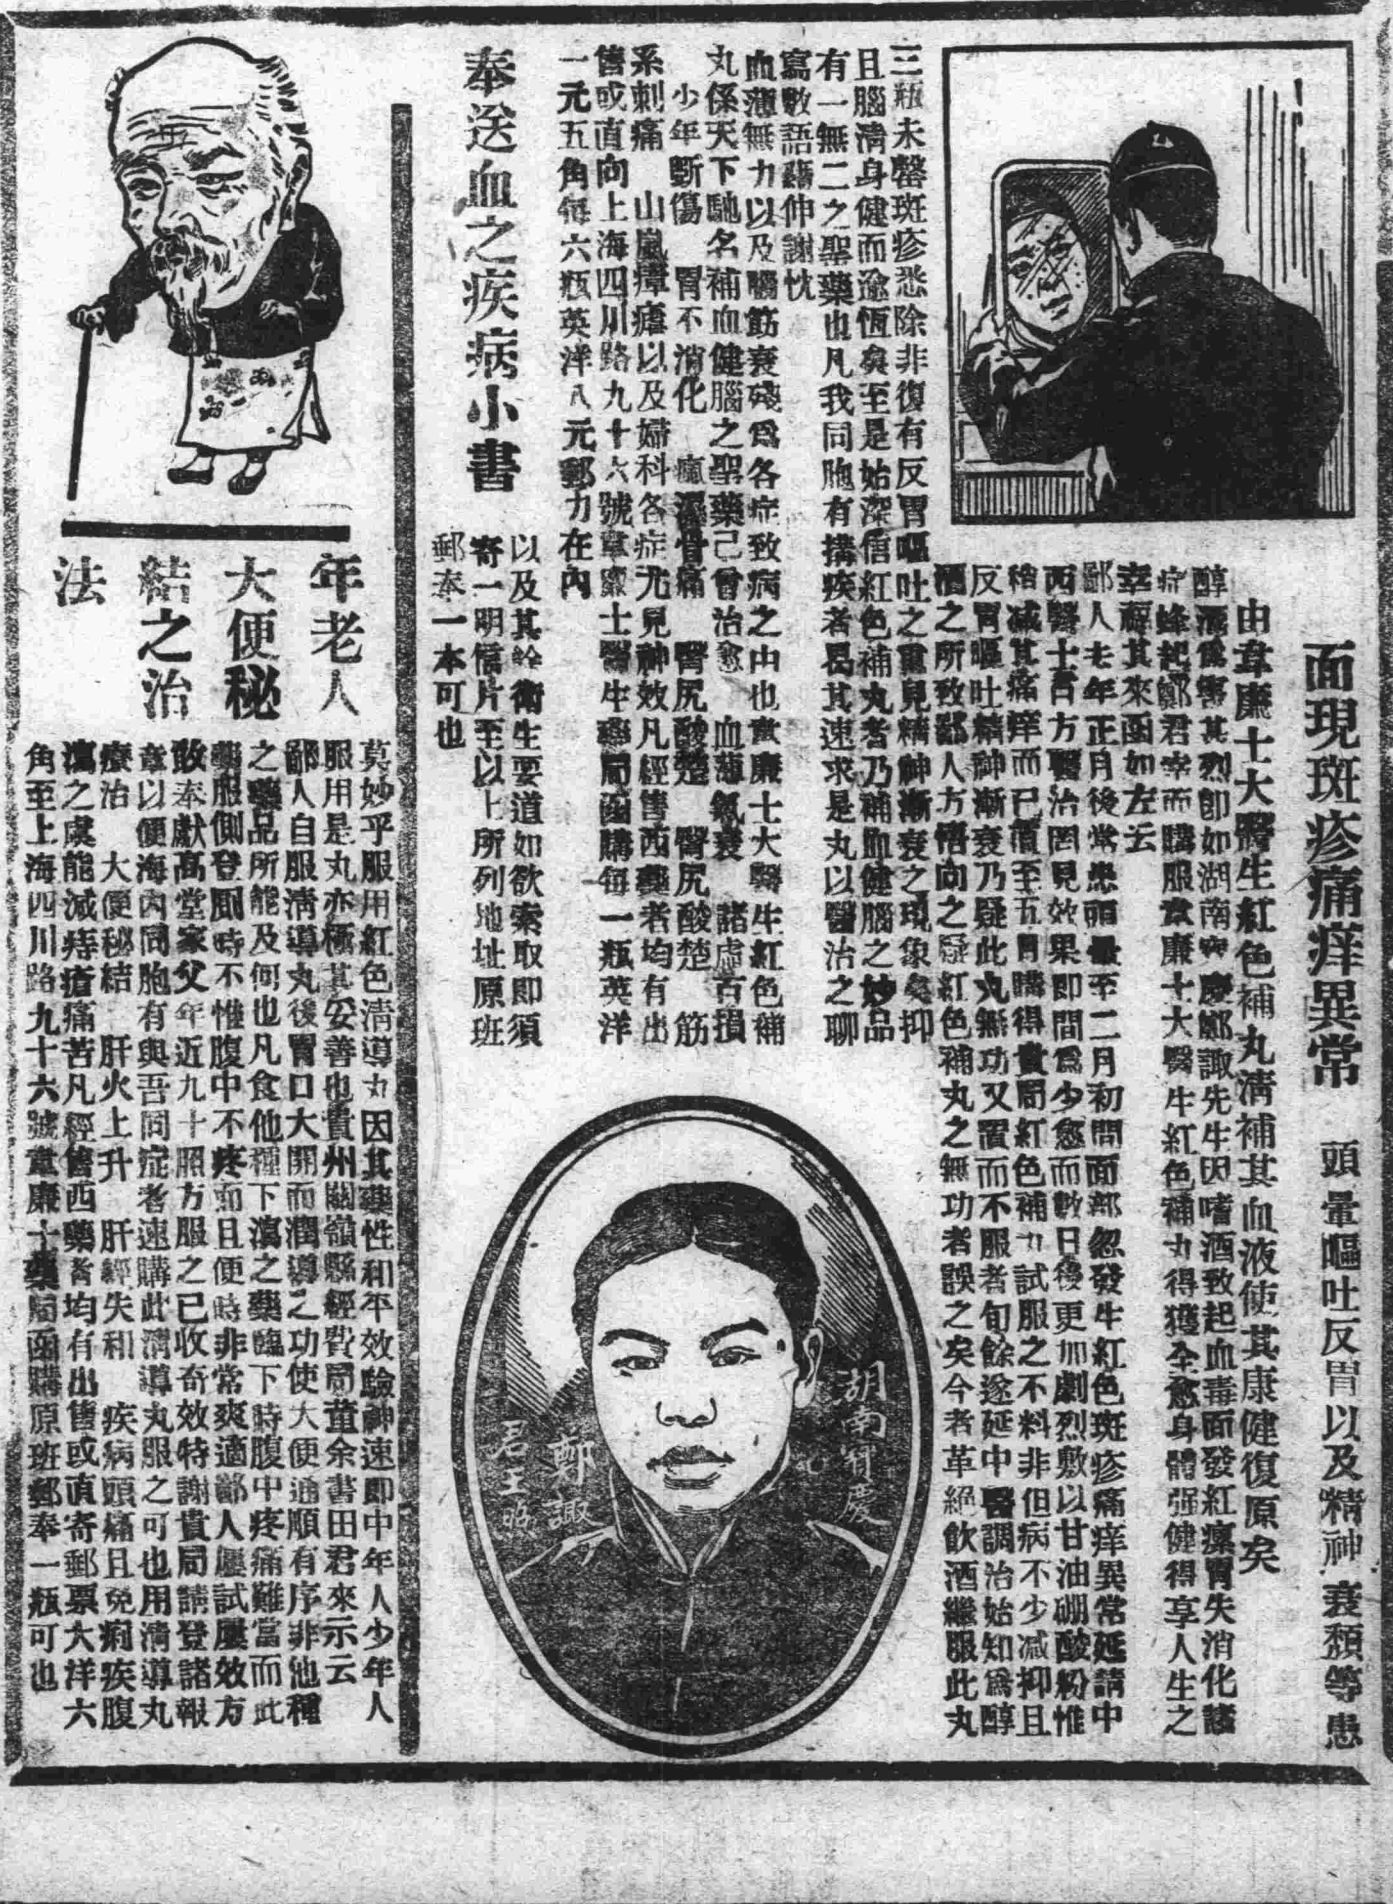 面現斑疹痛痒異常
頭暈嘔吐反胃以及精神衰頹等患
由韋廉士大醫生紅色補丸淸補其血液使其康健復原矣
醇酒爲害甚烈卽如湖南寶慶鄭諏先生因嗜酒致起血毒面發紅瘰胃失消化諸
症蜂起鄭君幸而購服韋廉士大醫生紅色補丸得獲全愈身體强健得享人生之
幸福其來函如左云
鄙人去年正月後常患頭暈至二月初間面部忽發生紅色斑疹痛痒異常延請中
西醫士百方醫治罔見效果卽間爲少愈而數日後更加劇烈敷以甘油硼酸粉惟
稍減其痛痒而已値至五月購得貴局紅色補丸試服之不料非但病不少减抑且
反胃嘔吐精神漸衰乃疑此丸無功又置而不服者旬餘遂延中醫調治始知爲醇
酒之所致鄙人方悟向之疑紅色補丸之無功者誤之矣今者革絕飲酒繼服此丸
三瓶未罄斑疹悉除非復有反胃嘔吐之重見精神漸衰之現象矣抑
且腦淸身健而逾恆矣至是始深信紅色補丸者乃補血健腦之妙品
有一無二之聖藥也凡我同胞有搆疾者曷其速求是丸以醫治之聊
寫數語藉伸謝忱
血薄無力以及腦筋衰殘爲各症致病之由也韋廉士大醫生紅色補
丸係天下馳名補血健腦之聖藥已曾治愈 血薄氣衰 諸虛百損
少年斷傷 胃不消化 瘋濕骨痛 臀尻酸楚 臀尻酸楚 筋
系刺痛 山嵐瘴瘧以及婦科各症尤見神效凡經售西藥者均有出
售或直向上海四川路九十六號韋廉士醫生藥局函購每一瓶英洋
一元五角每六瓶英洋八元郵力在內
奉送血之疾病小書
以及其餘衛生要道如欲索取卽須
寄一明信片至以上所列地址原班
郵奉一本可也
湖南寶慶
鄭諏
年老人
大便秘
結之治
法
莫妙乎服用紅色清導丸因其藥性和平效驗神速卽中年人少年人
服用是丸亦極其妥善也貴州關嶺縣經費局董余書田君來示云
鄙人自服淸導丸後胃口大開而潤導之功使大便通順有序非他種
之藥品所能及何也凡食他種下瀉之藥臨下時腹中疼痛難當而此
藥服側登厠時不惟腹中不疼而且便時非常爽適鄙人屢試屢效方
敢奉獻高堂家父年近九十照方服之已收奇效特謝貴局請登諸報
章以便海內同胞有與吾同症者速購此淸導丸服之可也用清導丸
療治 大便秘結 肝火上升 肝經失和 疾病頭痛且免痢疾腹
瀉之虞能減痔瘡痛苦凡經售西藥者均有出售或直寄郵票大洋六
角至上海四川路九十六號韋廉士藥局函購原班郵奉一瓶可也